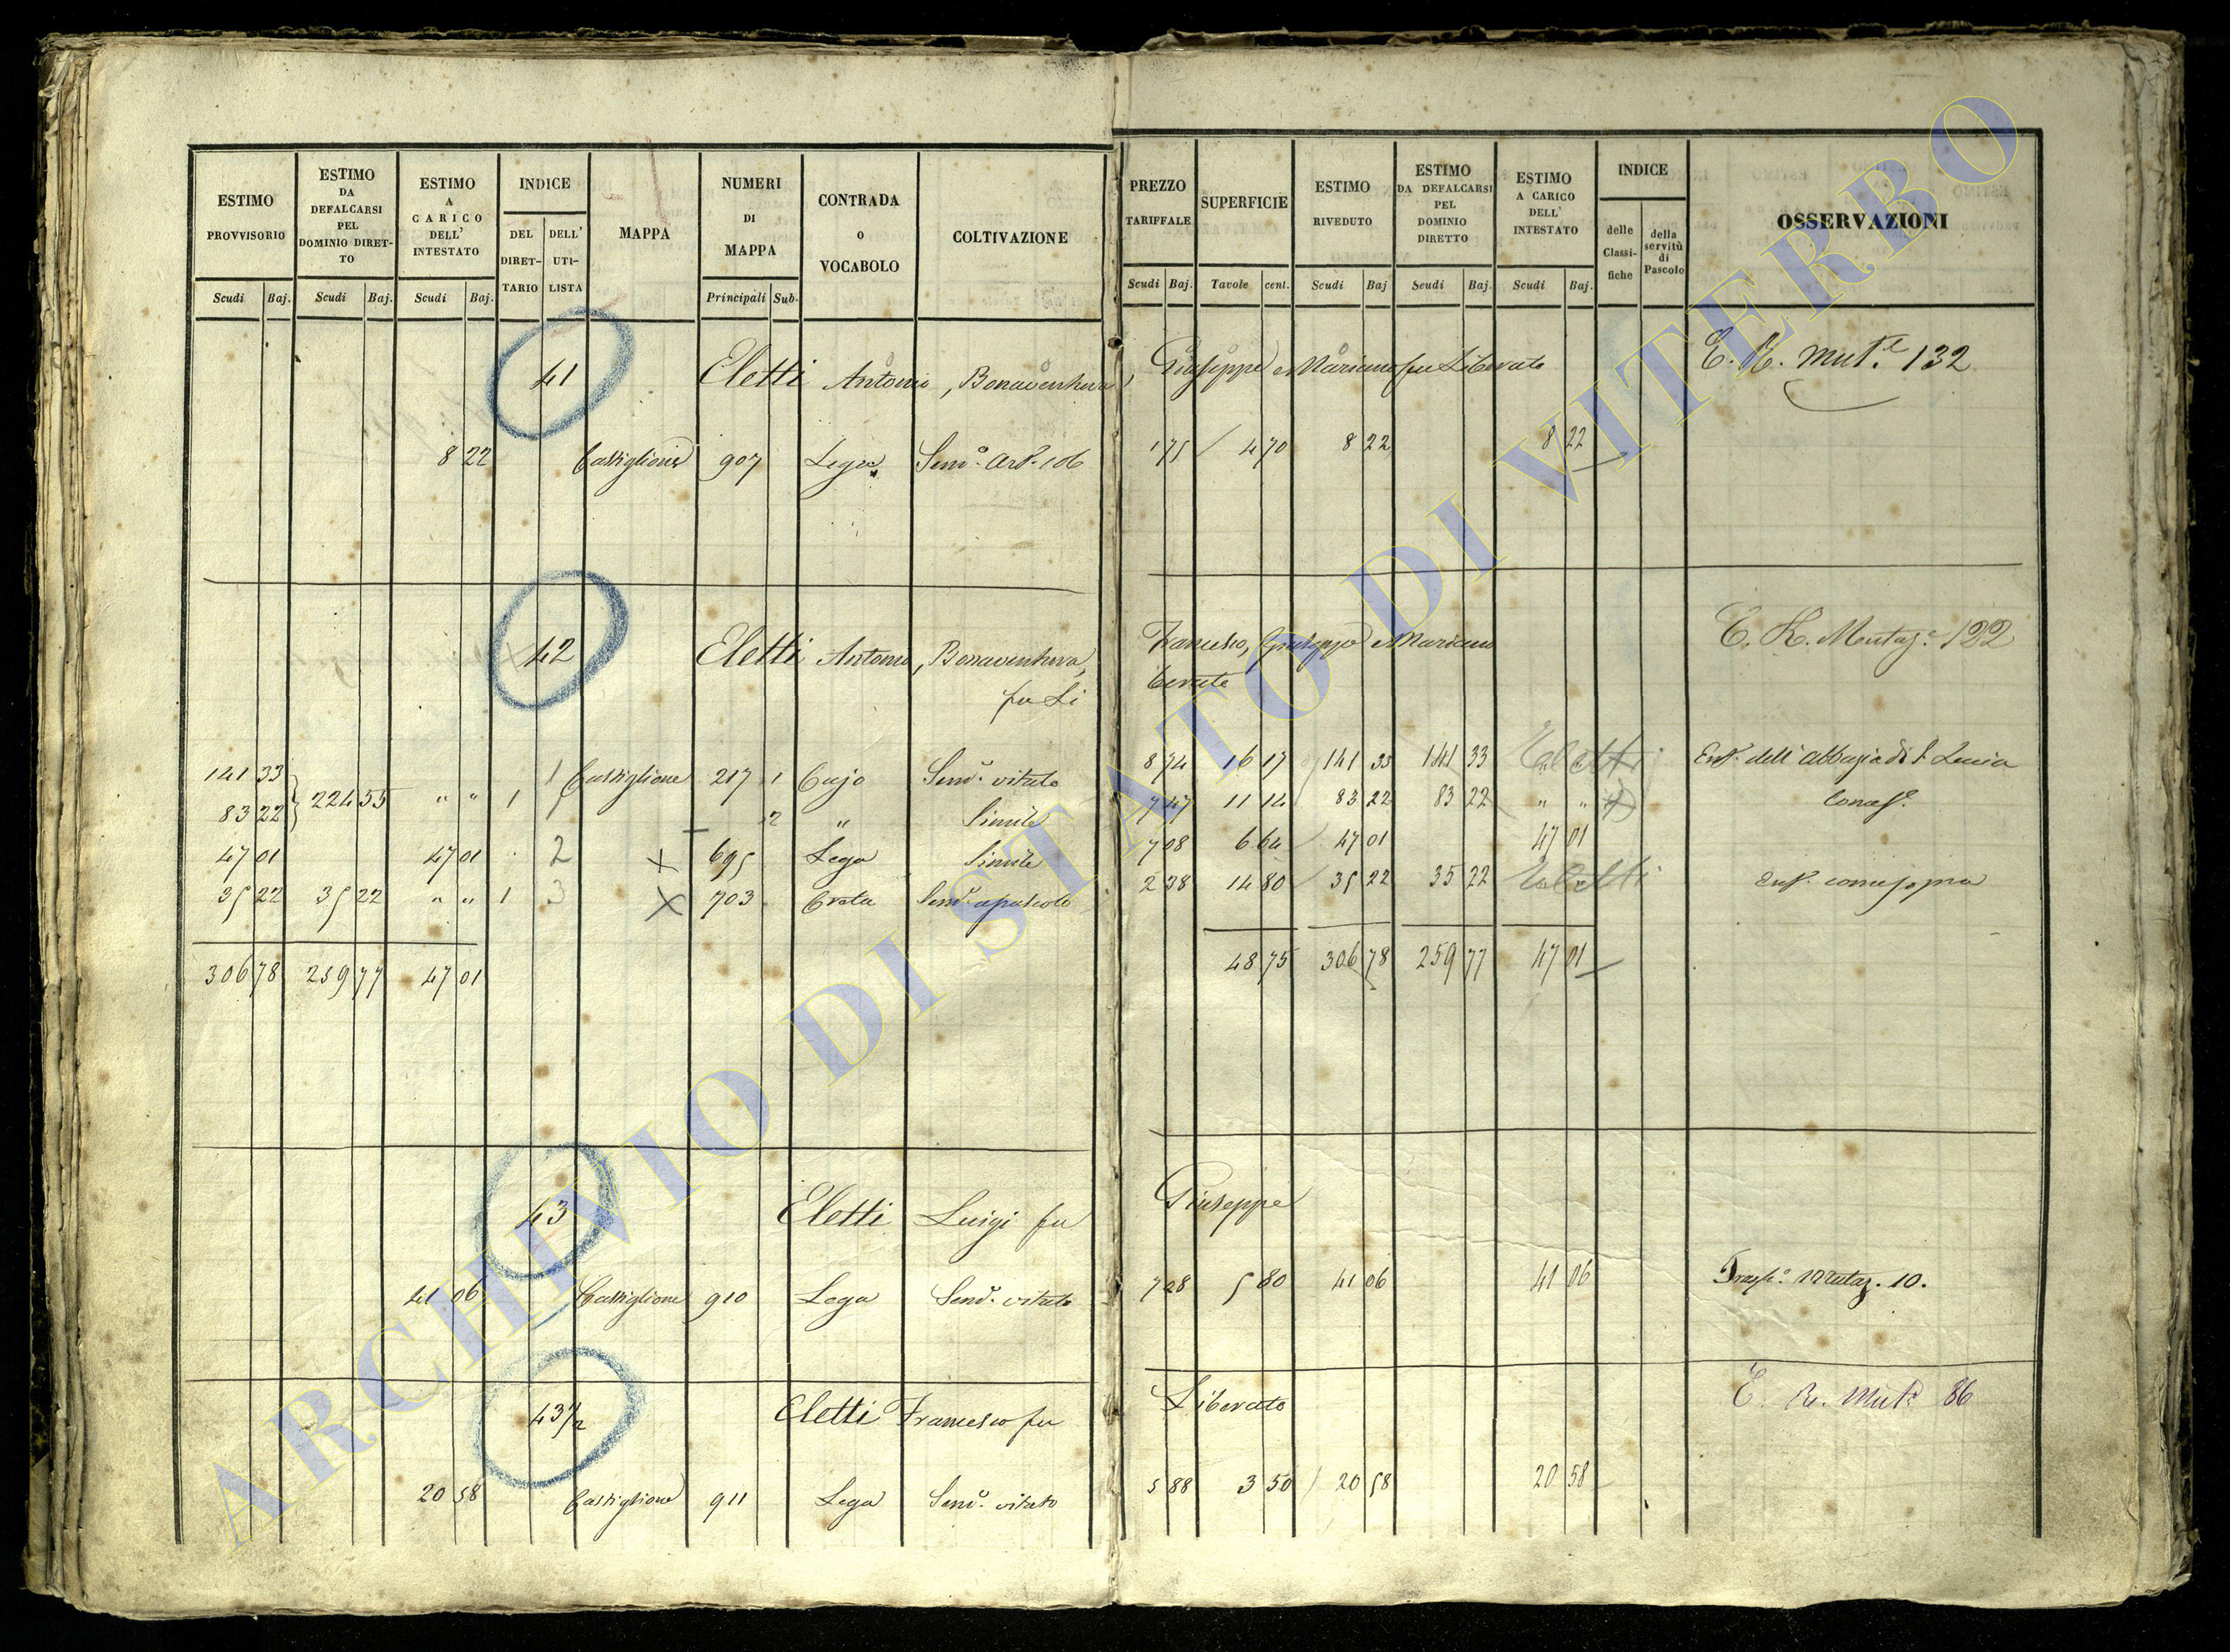 ESTIMO PROVVISORIO
ESTIMO DA DEFALCARSI PEL DOMINIO DIRET-TO
ESTIMO A CARICO DELL' INTESTATO
INDICE
DEL DIRET-TARIO
DELL' UTI-LISTA
MAPPA
NUMERI DI MAPPA
CONTRADA O VOCABOLO
COLTIVAZIONE
PREZZO TARIFFALE
SUPERFICIE
ESTIMO RIVEDUTO
ESTIMO DA DEFALCARSI PEL DOMINIO DIRETTO
ESTIMO A CARICO DELL' INTESTATO
INDICE
delle Classi-fiche
della servitù di Pascolo
OSSERVAZIONI
Scudi Baj. Scudi Baj. Scudi Baj. Principali Sub. Scudi Baj. Tavole cent. Scudi Baj Scudi Baj. Scudi Baj.
41 Eletti Antonio, Bonaventura, Giuseppe e Mariano fu Liberato E. R. mut.e 132
8 22 Castiglione 907 Lega Sem.o Art. 106 1 75 4 70 8 22 8 22
42 Eletti Antonio, Bonaventura, Francesco, Giuseppe e Mariano E. R. Mutaz.e 122
fu Li berato
141 33 1 Castiglione 217 1 Cujo Sem.o vitato 8 74 16 17 141 33 141 33 Eletti Enf. dell' abbazia di S. Lucia
83 22 224 55 " " 1 1 2 " Simile 7 47 11 14 83 22 83 22 " "
47 01 47 01 2 695 Lega Simile 7 08 6 64 47 01 47 01
35 22 35 22 " " 1 3 703 Creta Sem.o a pascolo 2 38 14 80 35 22 35 22 Eletti Enf. come sopra
306 78 259 77 47 01 48 75 306 78 259 77 47 01
43 Eletti Luigi fu Giuseppe
41 06 Castiglione 910 Lega Sem.o vitato 7 28 5 80 41 06 41 06 Trasp.o Mutaz. 10.
43 1/2 Eletti Francesco fu Liberato E. R. Mut. 86
20 58 Castiglione 911 Lega Sem.o vitato 5 88 3 50 20 58 20 58
ARCHIVIO DI STATO DI VITERBO